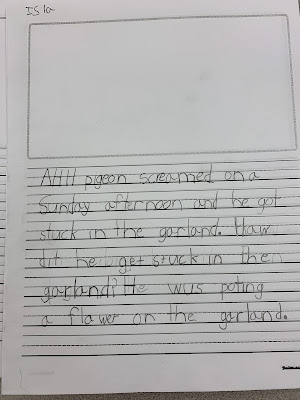 Isla
AHH pigeon screamed on a
Sunday afternoon and he got
stuck in the garland. Haw
dit he get stuck in the
garland? He wus poting
a flawer on the garland.